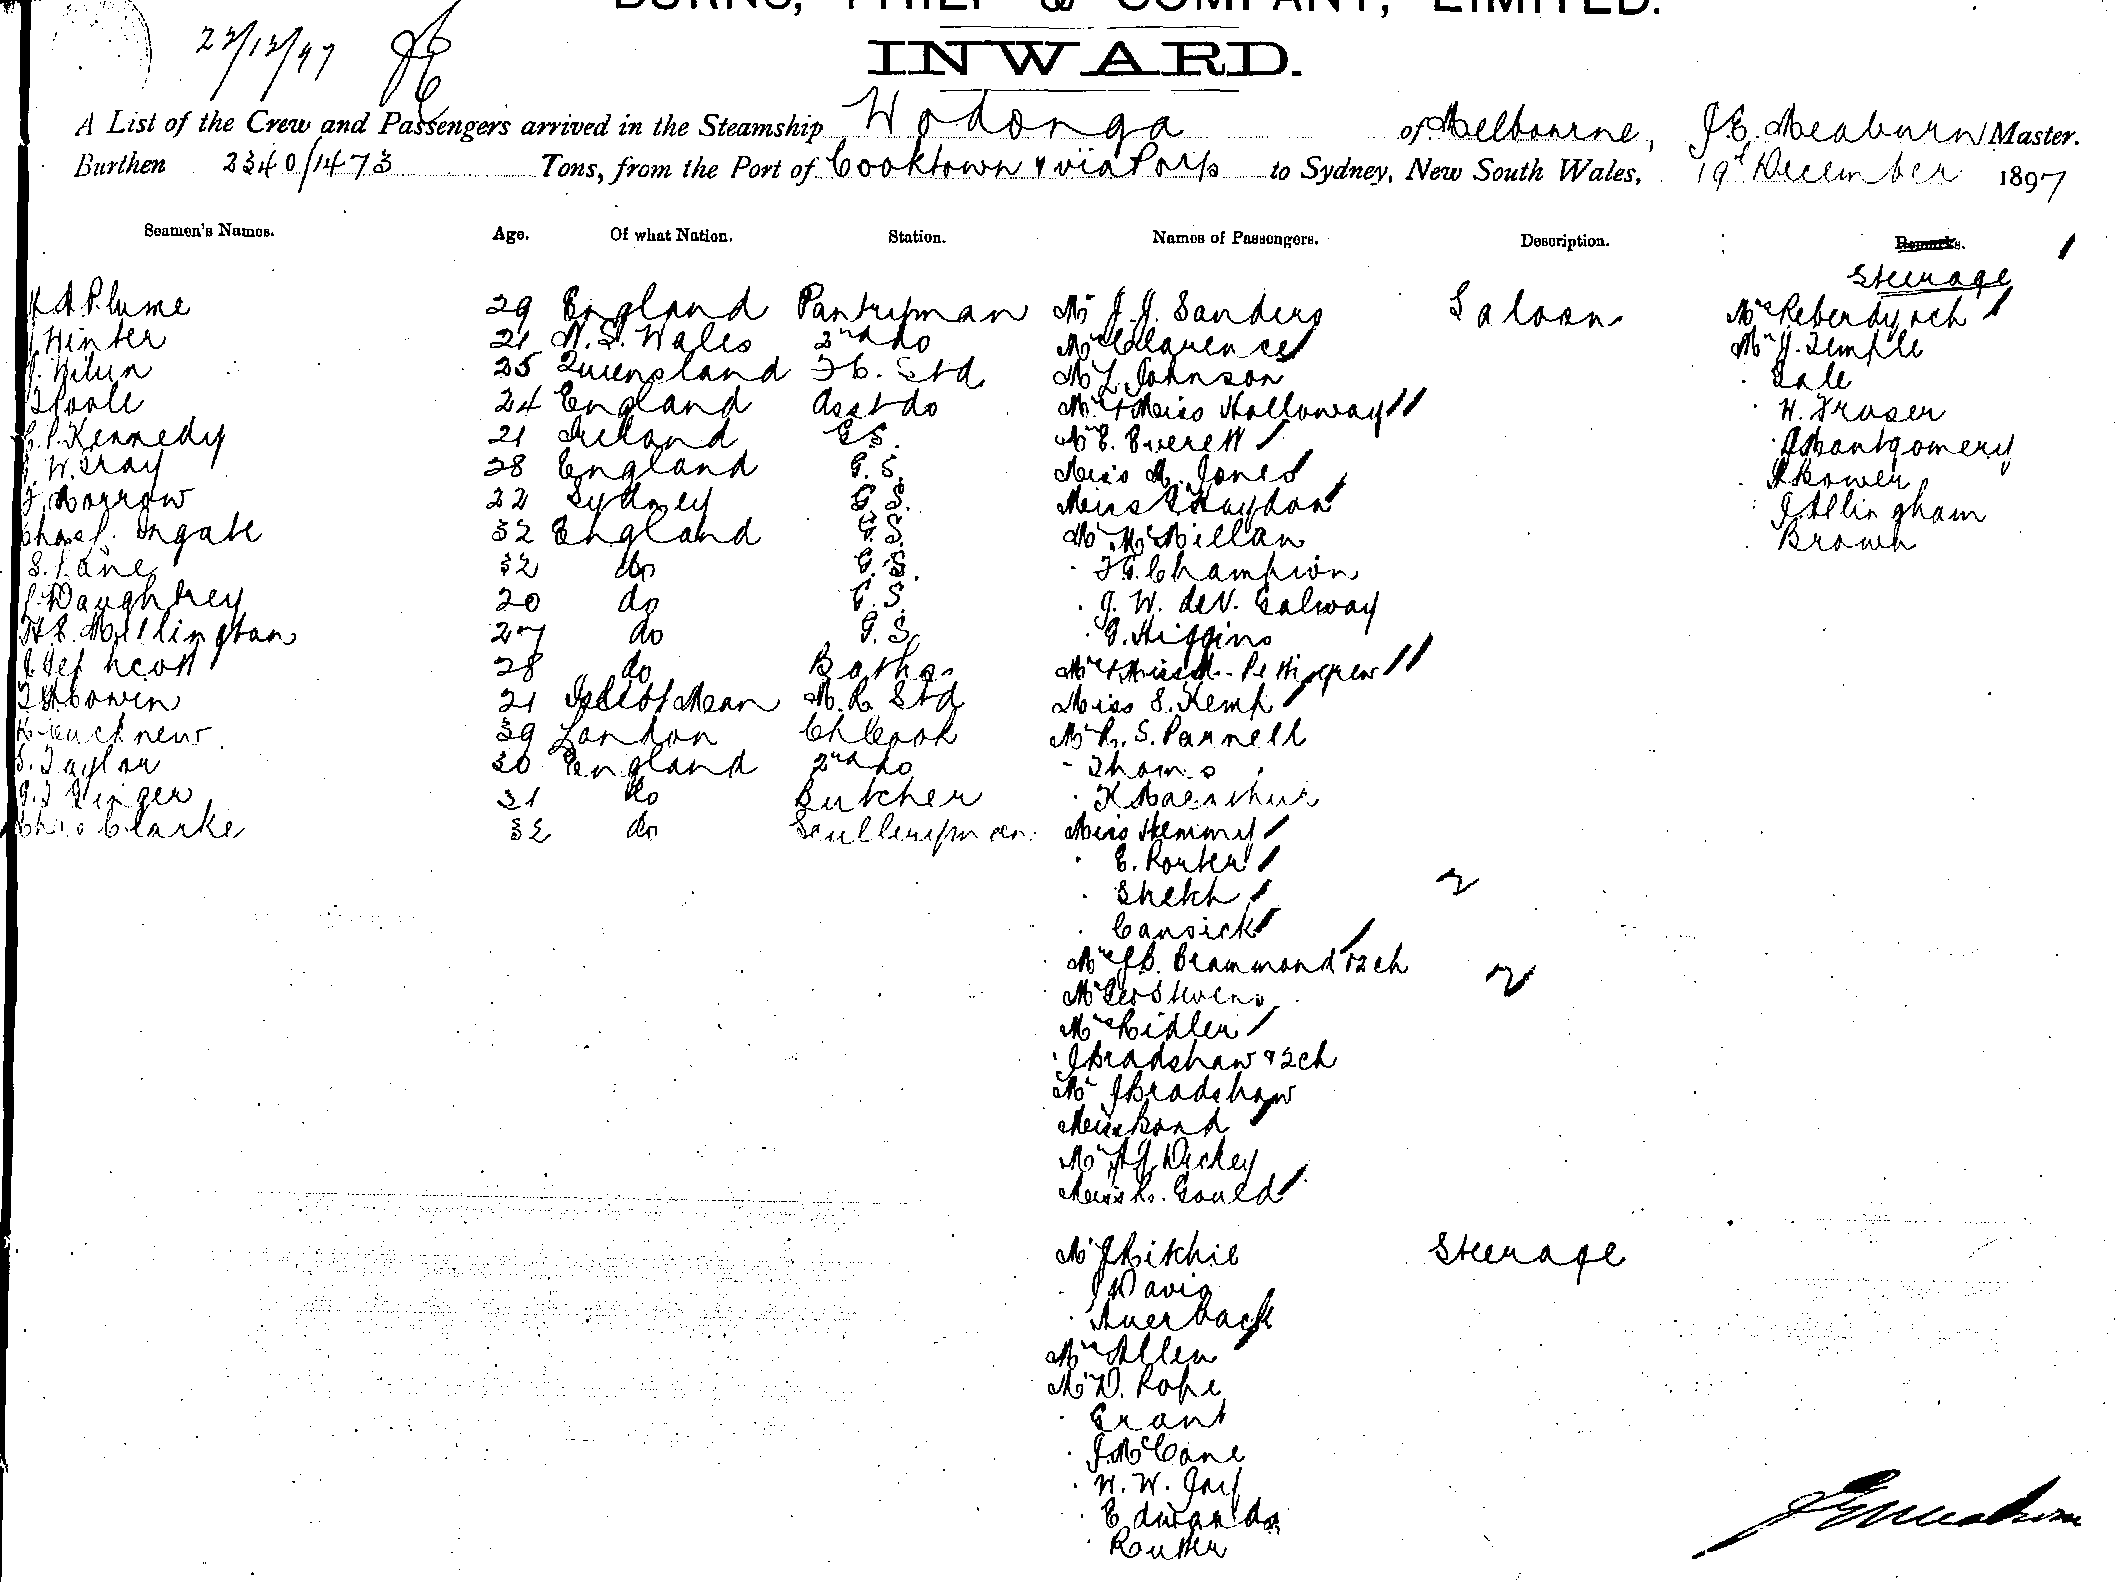 BURNS, PHILP & COMPANY, LIMITED.
22/12/97
INWARD.
A List of the Crew and Passengers arrived in the Steamship Wodonga of Melbourne, J E. Meaburn Master.
Burthen 2340/1473 Tons, from the Port of Cooktown & via Ports to Sydney, New South Wales, 19th December 1897
Seamen's Names. Age. Of what Nation. Station. Names of Passengers. Description. Remarks.
Steerage
Plume 29 England Pantryman Mr J. J. Sanders Saloon Mrs & ch
Winter 21 N. S. Wales 2nd do Mrs Clarence Mr J. Temple
25 Queensland Std Mr L. Johnson Gale
Poole 24 England Asst do Mrs & Miss Holloway W. Fraser
Kennedy 21 Ireland G S. Mr E. Everett Montgomery
W. Gray 28 England G. S. Miss M. Jones Bower
Morrow 22 Sydney G S. Miss Haydon J Allingham
Chas Ingate 32 England G. S. Mr McMillan Brown
S. Lane 32 do G. S. Champion
20 do G. S. J. W. deV. Galway
Millington 27 do G. S. G. Higgins
28 do Baths Mrs & Miss Pettigrew
Bowen 21 Isle of Man M. R. Std Miss S. Kemp
39 London Ch Cook Mr R. S. Parnell
S. Taylor 30 England 2nd do Thoms
31 do Butcher MacArthur
Chas Clarke 32 do Sculleryman Miss Hemmy
E. Porter
" Cansick
Mrs J B. & 2 ch
Mr Geo Stevens
Mrs Ridler
J Bradshaw & 2 ch
Mr J Bradshaw
Miss Bond
Mr Dickey
Miss R. Gould
Mr J Ritchie Steerage
J Davis
Auerback
Mrs Allen
Mr D. Pope
Grant
J. McCane
W. W. Joy
Edwards
Rutter
J E Meaburn